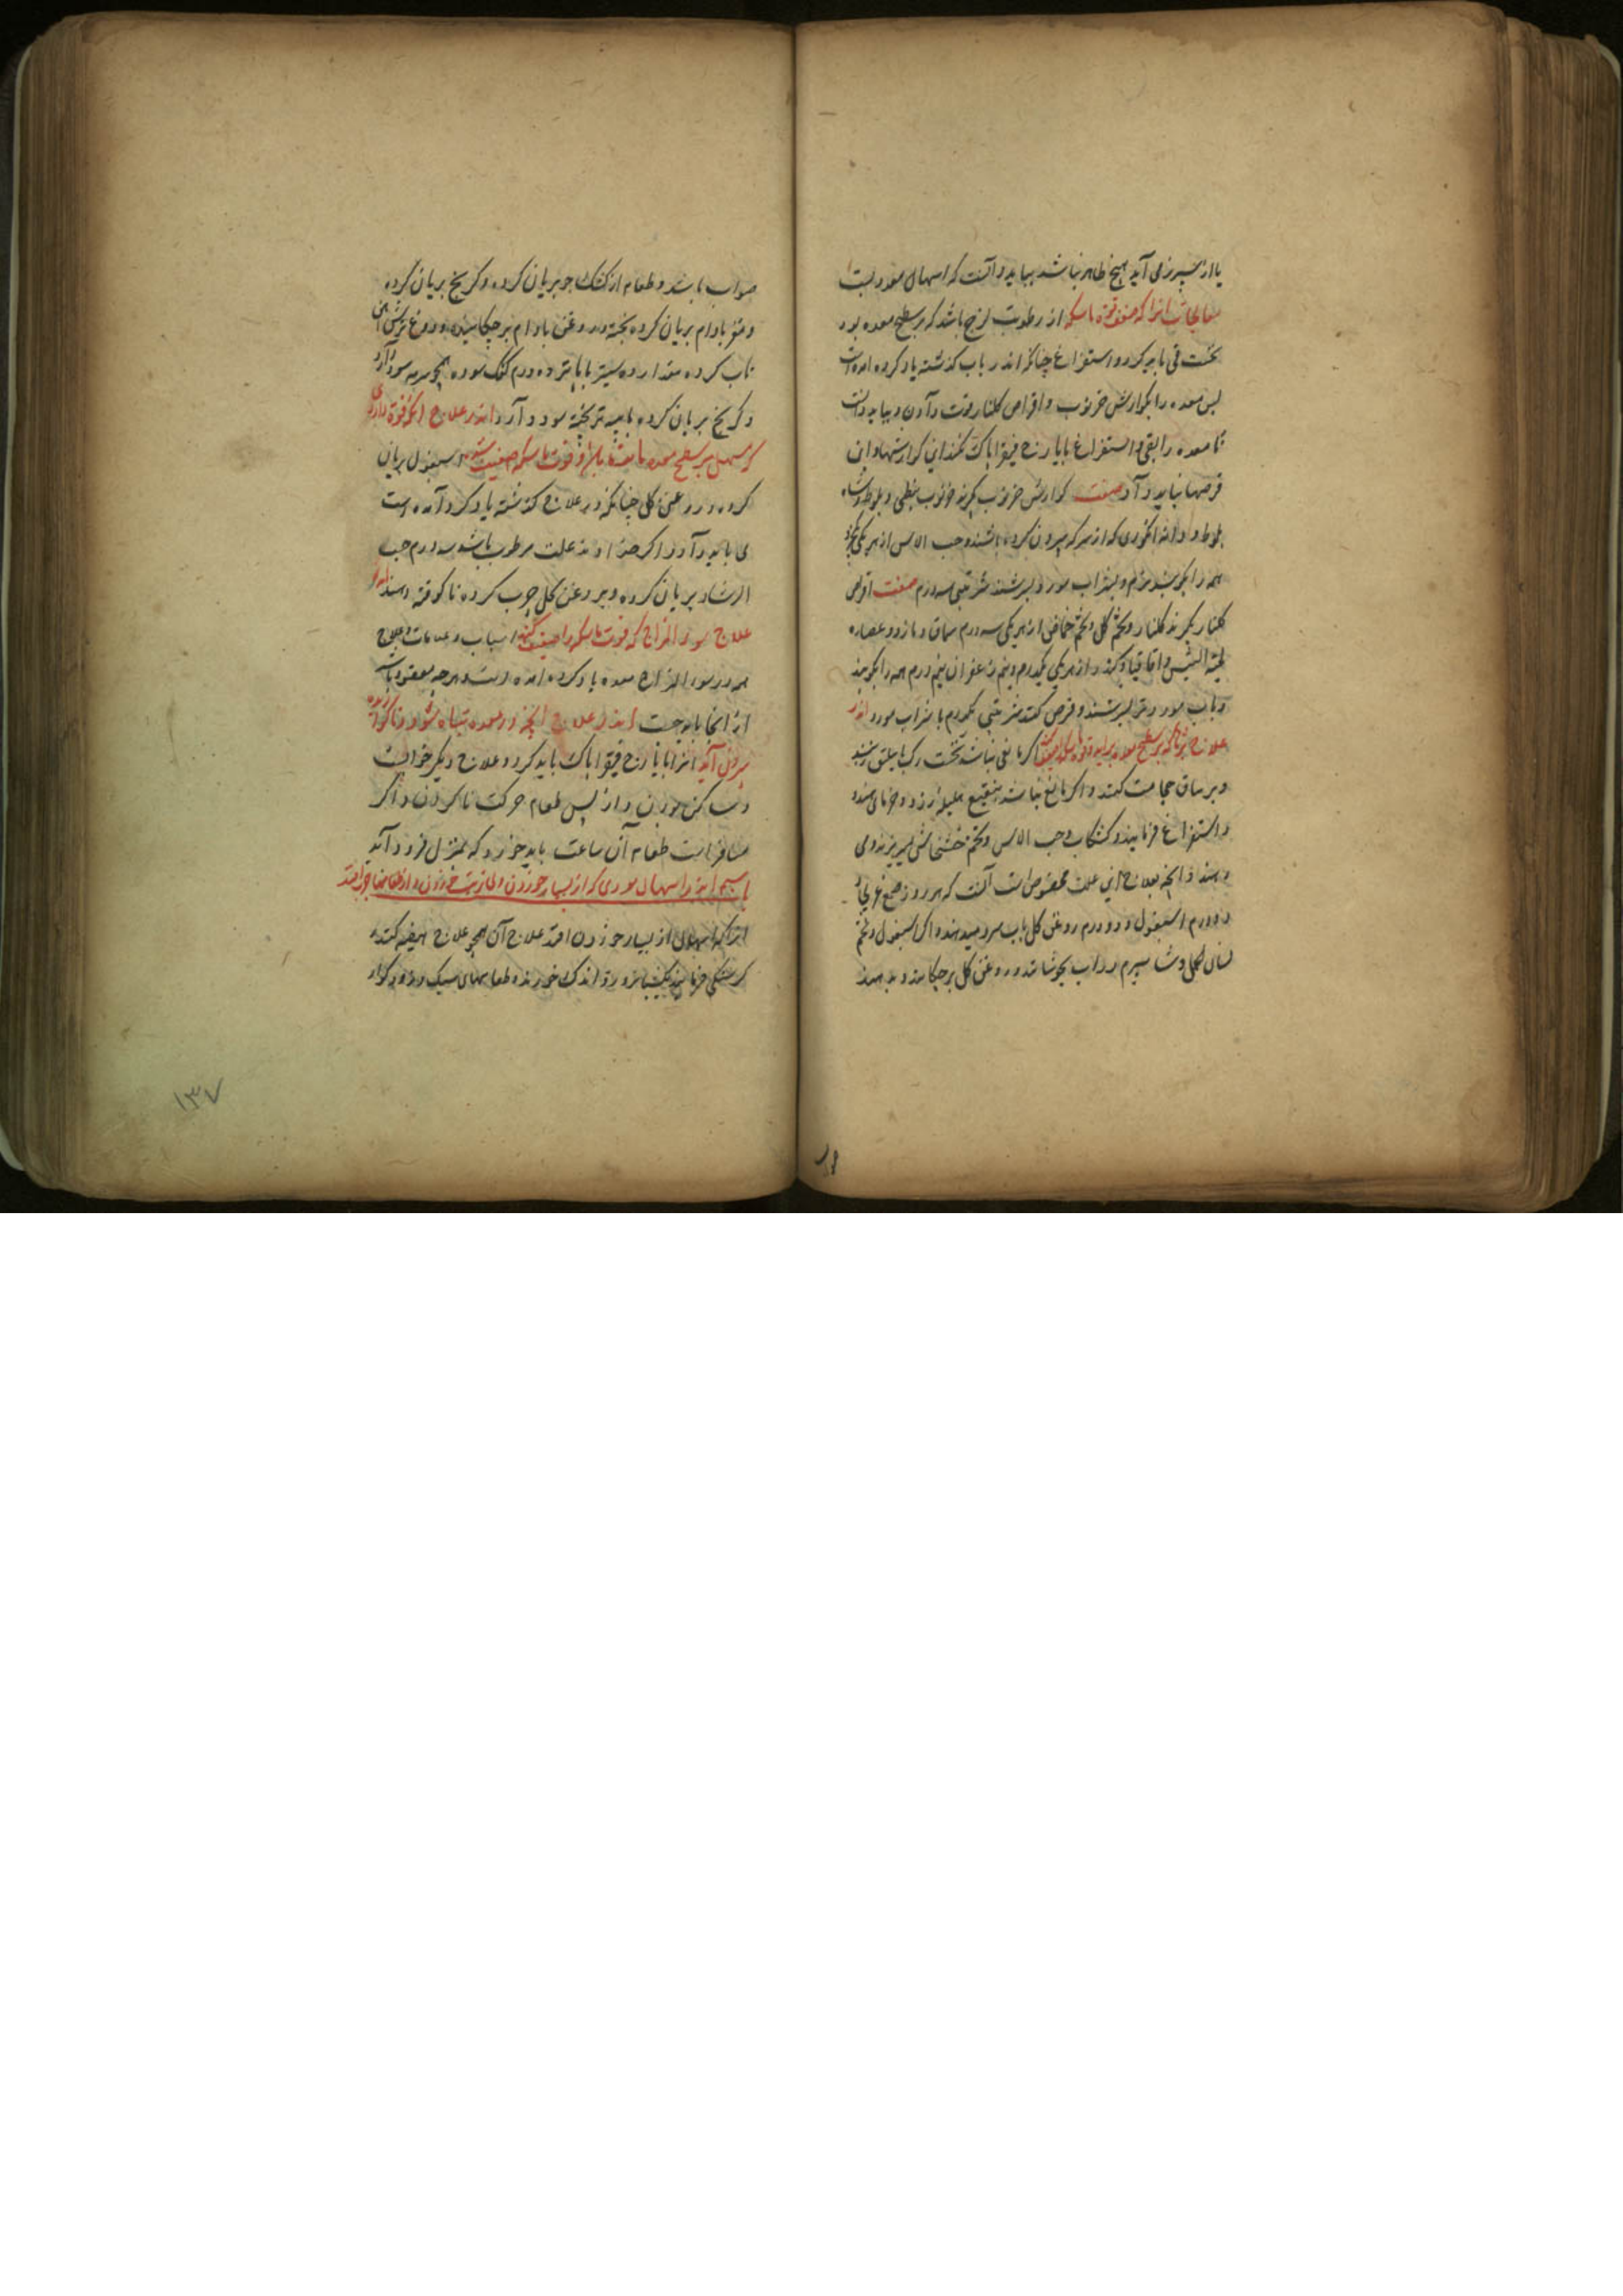 یا از سپرز می آید هیچ ظاهر نباشد بباید دانست که اسهال معدیست
معالجات انرا که ضعف قوة ماسکه از رطوبت لزج باشد که بر سطح معده بود
نخست قی باید کرد و استفراغ چنانکه اندر باب گذشته یاد کرده امده است
پس معده را بکوارش خرنوب و اقراص کلنار قوت دادن و بباید دانست
تا معده را بقی و استفراغ بایارج فیقرا پاک نکنند این کوارشها و این
قرصها نباید داد صفت کوارش خرنوب بگیرند خرنوب نبطی و بلوط و شاه
بلوط و دانه انکوری که از سرکه بیرون کرده باشند و حب الاس از هر یکی
همه را بکوبند نرم و بشراب مورد بسرشند شربتی سه درم صفت اقراص
کلنار بگیرند کلنار و تخم کل و تخم حماض از هر یکی سه درم سماق و مازو و عصاره
لحیة التیس و اقاقیا و کندر از هر یکی یکدرم و نیم زعفران نیم درم همه را بکوبند
و باب مورد تر بسرشند و قرص کنند شربتی یکدرم با شراب مورد اندر
علاج بثرها که بر سطح معده براید و قوة ماسکه ضعیف کند اگر مانعی نباشد نخست رک باسلیق زنند
و بر ساق حجامت کنند و اگر مانع نباشد بنقیع هلیله زرد و خرمای هندو
استفراغ فرمایند و کشکاب و حب الاس و تخم خشخاش می پزند و می
دهند و انچه بعلاج این علت مخصوص است آنست که هر روز صمغ عربی
دو درم اسبغول و دو درم روغن کل باب سرد میدهند و اگر اسبغول و تخم
لسان الحمل و شاه سپرم در اب بجوشانند و روغن کل بر چکانند و بدهند
صواب باشد و طعام از کشک جو بریان کرده و کرنج بریان کرده
و مغز بادام بریان کرده پخته و روغن بادام بر چکانیده و دوغ ترش آهن
تاب کرده مقدار ده سیر با ده درم کعک سوده همچو سرمه سود دارد
و کرنج بریان کرده با پیه بز پخته سود دارد اندر علاج انکه قوة داروی
مسهل بر سطح معده مانده باشد و قوت ماسکه ضعیف شده اسبغول بریان
کرده و روغن کل چنانکه در علاج گذشته یاد کرده آمده است
می باید داد و اگر خداوند علت مرطوب باشد سه درم حب
الرشاد بریان کرده و بروغن کل چرب کرده ناکوفته دهند اندر
علاج سوء المزاج که قوت ماسکه را ضعیف کند اسباب و علامات و علاج
هر سوء المزاج معده یاد کرده امده است و هرچه مقصود است
از انجا باید جست اندر علاج انچه در معده تباه شود و ناکوارده
بیرون آید انرا بایارج فیقرا پاک باید کرد و علاج دیگر خوابست
و ساکن بودن و از پس طعام حرکت ناکردن و اگر
مسافر است طعام آن ساعت باید خورد که بمنزل فرود آید
باب اندر اسهال معدی که از بسیار خوردن و بی ترتیب خوردن و از طعامهای چرب افتد
انرا که اسهال از بسیار خوردن افتد علاج آن همچو علاج هیضه کنند و
کرسنکی فرمایند یک شبانروز و اندک خورند و طعامهای سبک و زود کوار
۱۳۷